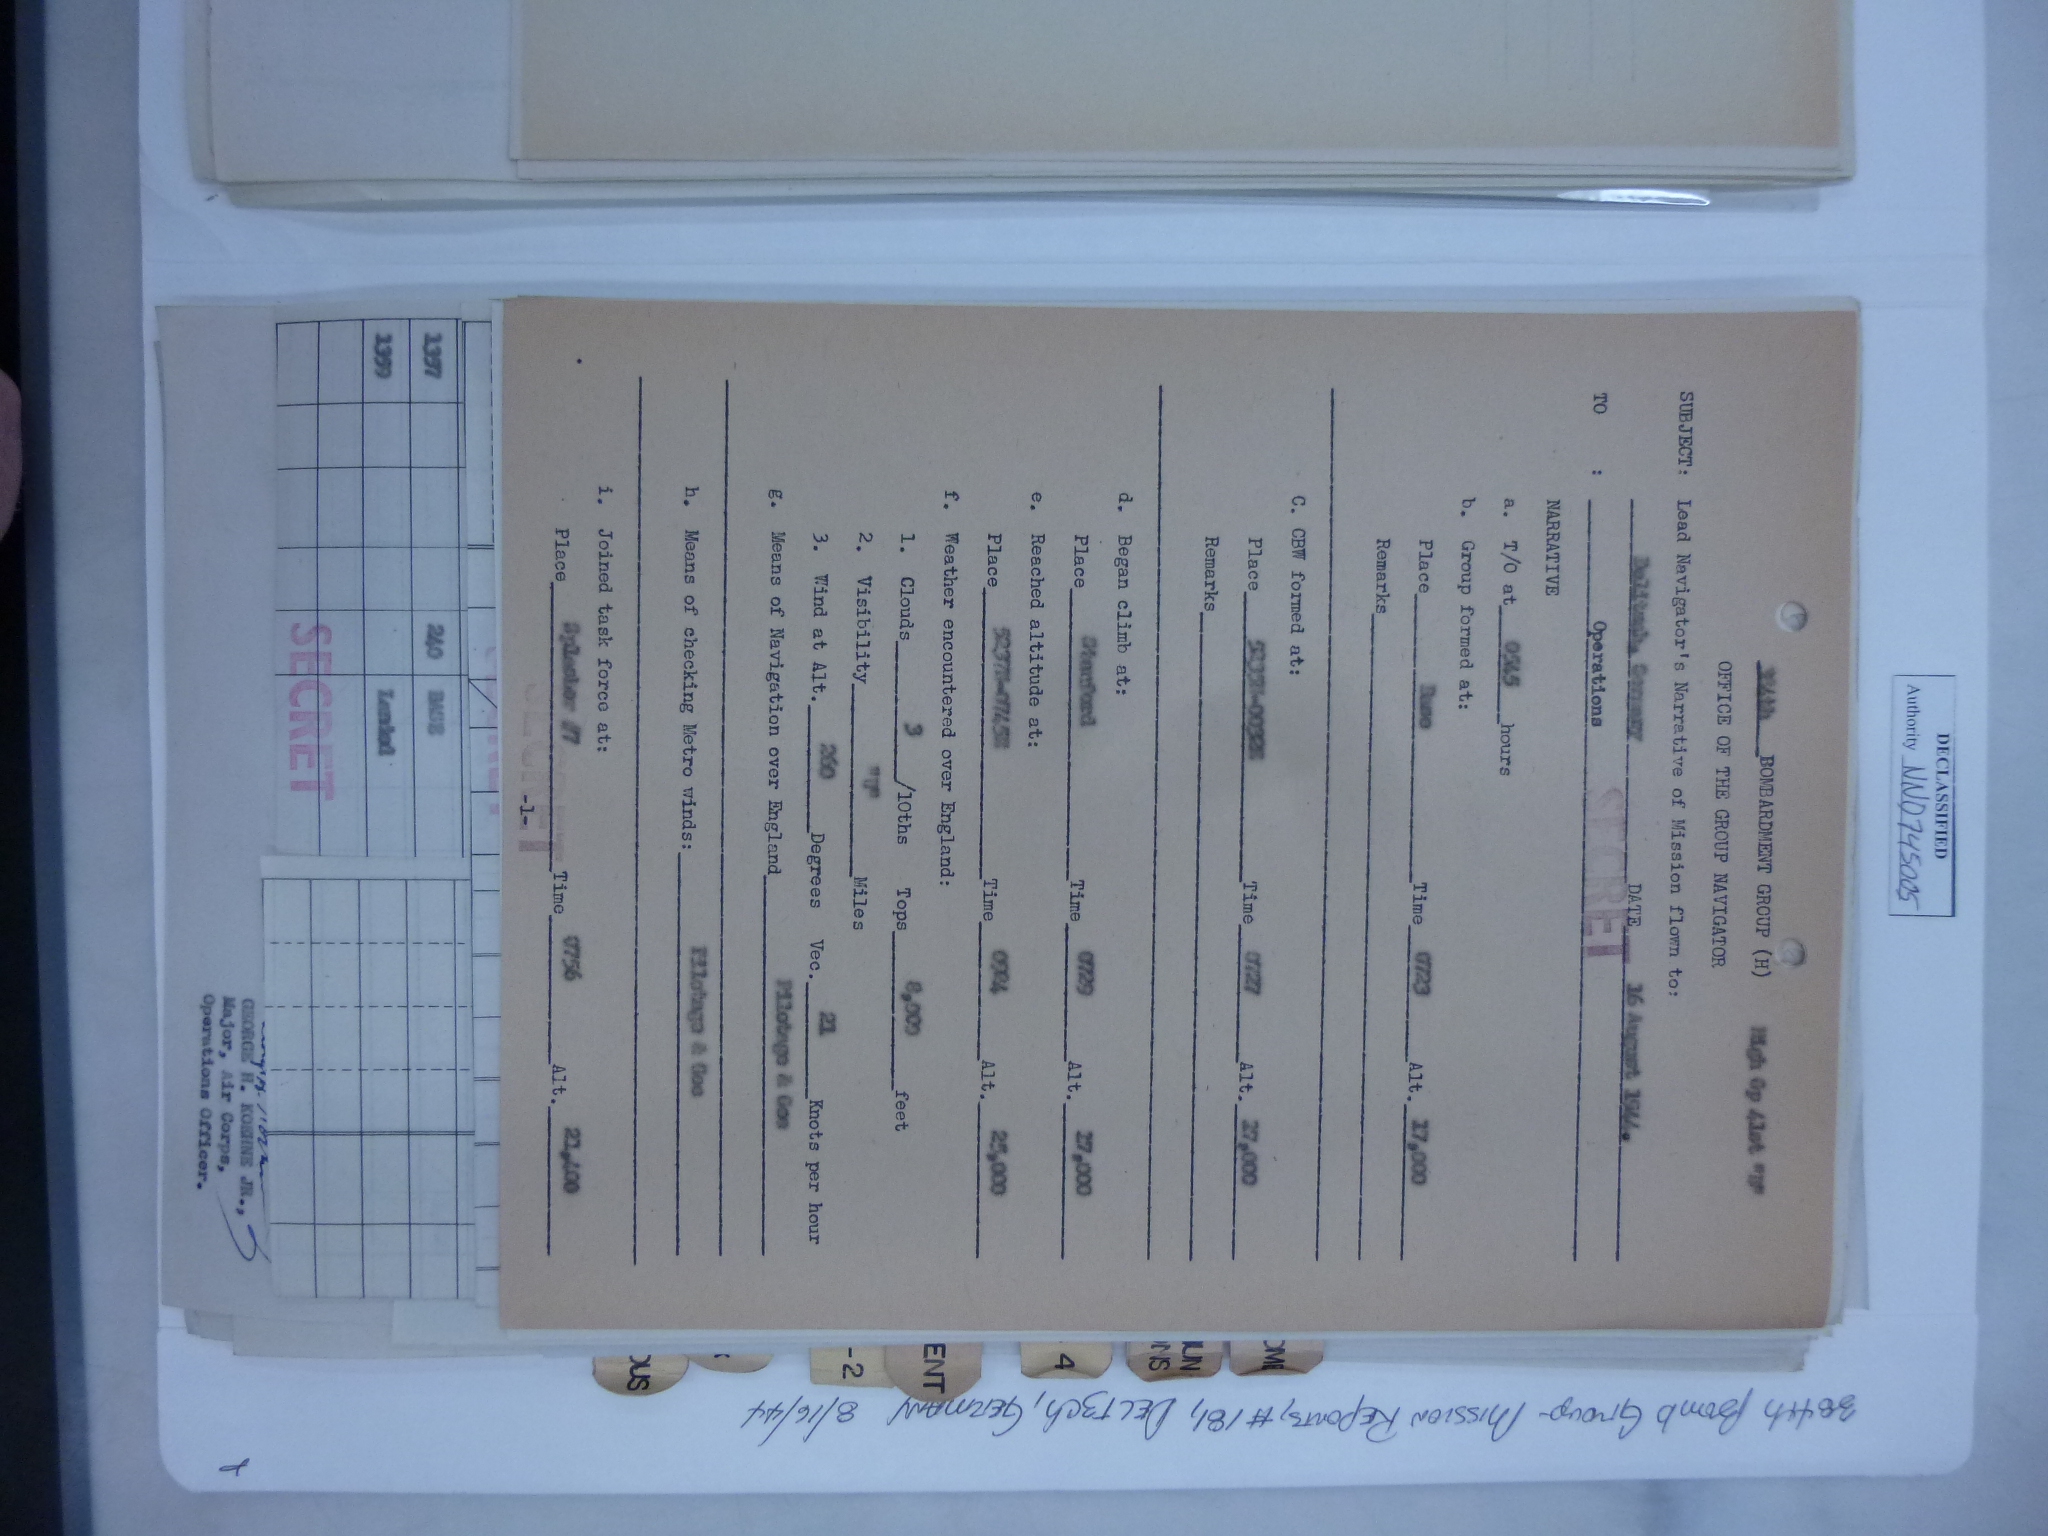 DECLASSIFIED
Authority NND745005
384th BOMBARDMENT GROUP (H) High Gp
OFFICE OF THE GROUP NAVIGATOR
SUBJECT: Lead Navigator's Narrative of Mission flown to:
Germany DATE 16 August 1944.
TO : Operations
SECRET
NARRATIVE
a. T/O at 0545 hours
b. Group formed at:
Place Base Time 0723 Alt. 17,000
Remarks
C. CBW formed at:
Place Time 0727 Alt. 17,000
Remarks
d. Began climb at:
Place Time 0729 Alt. 17,000
e. Reached altitude at:
Place Time Alt. 25,000
f. Weather encountered over England:
1. Clouds 3 /10ths Tops 8,000 feet
2. Visibility "U" Miles
3. Wind at Alt. 260 Degrees Vec. 21 Knots per hour
g. Means of Navigation over England Pilotage & Gee
h. Means of checking Metro winds: Pilotage & Gee
i. Joined task force at:
Place Splasher #7 Time 0756 Alt. 21,400
-1-
1397 240
1399 Landed
SECRET
GEORGE H. KOEHNE JR.,
Major, Air Corps,
Operations Officer.
OUS
-2
ENT
4
384th Bomb Group - Mission Reports, #181, Delitzch, Germany 8/16/44